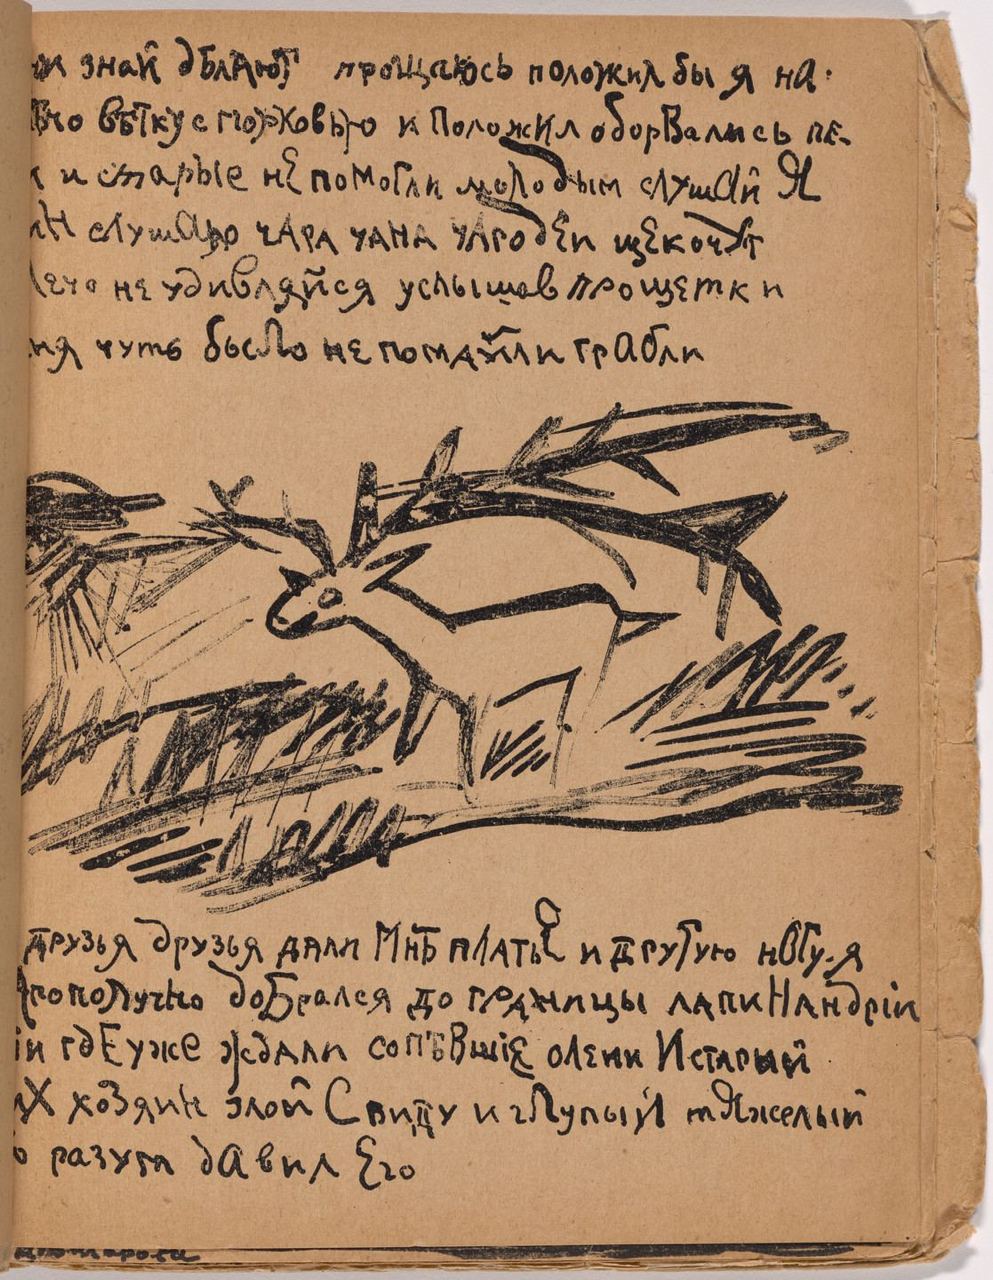 знай дѣлают прощаюсь положил бы я на-
вѣтку с морковью и положил оборвались пе-
и старые не помогли молодым слушай я
слушаю чара чана чародѣи щекочут
не удивляйся услышав прощетки
чуть было не помяули грабли
друзья друзья дали мнѣ платье и другую ногу. я
агополучно добрался до границы лапинандріи
гдѣ уже ждали сопѣвшіе олени и старый
их хозяин злой с виду и глупый тяжелый
разум давил его